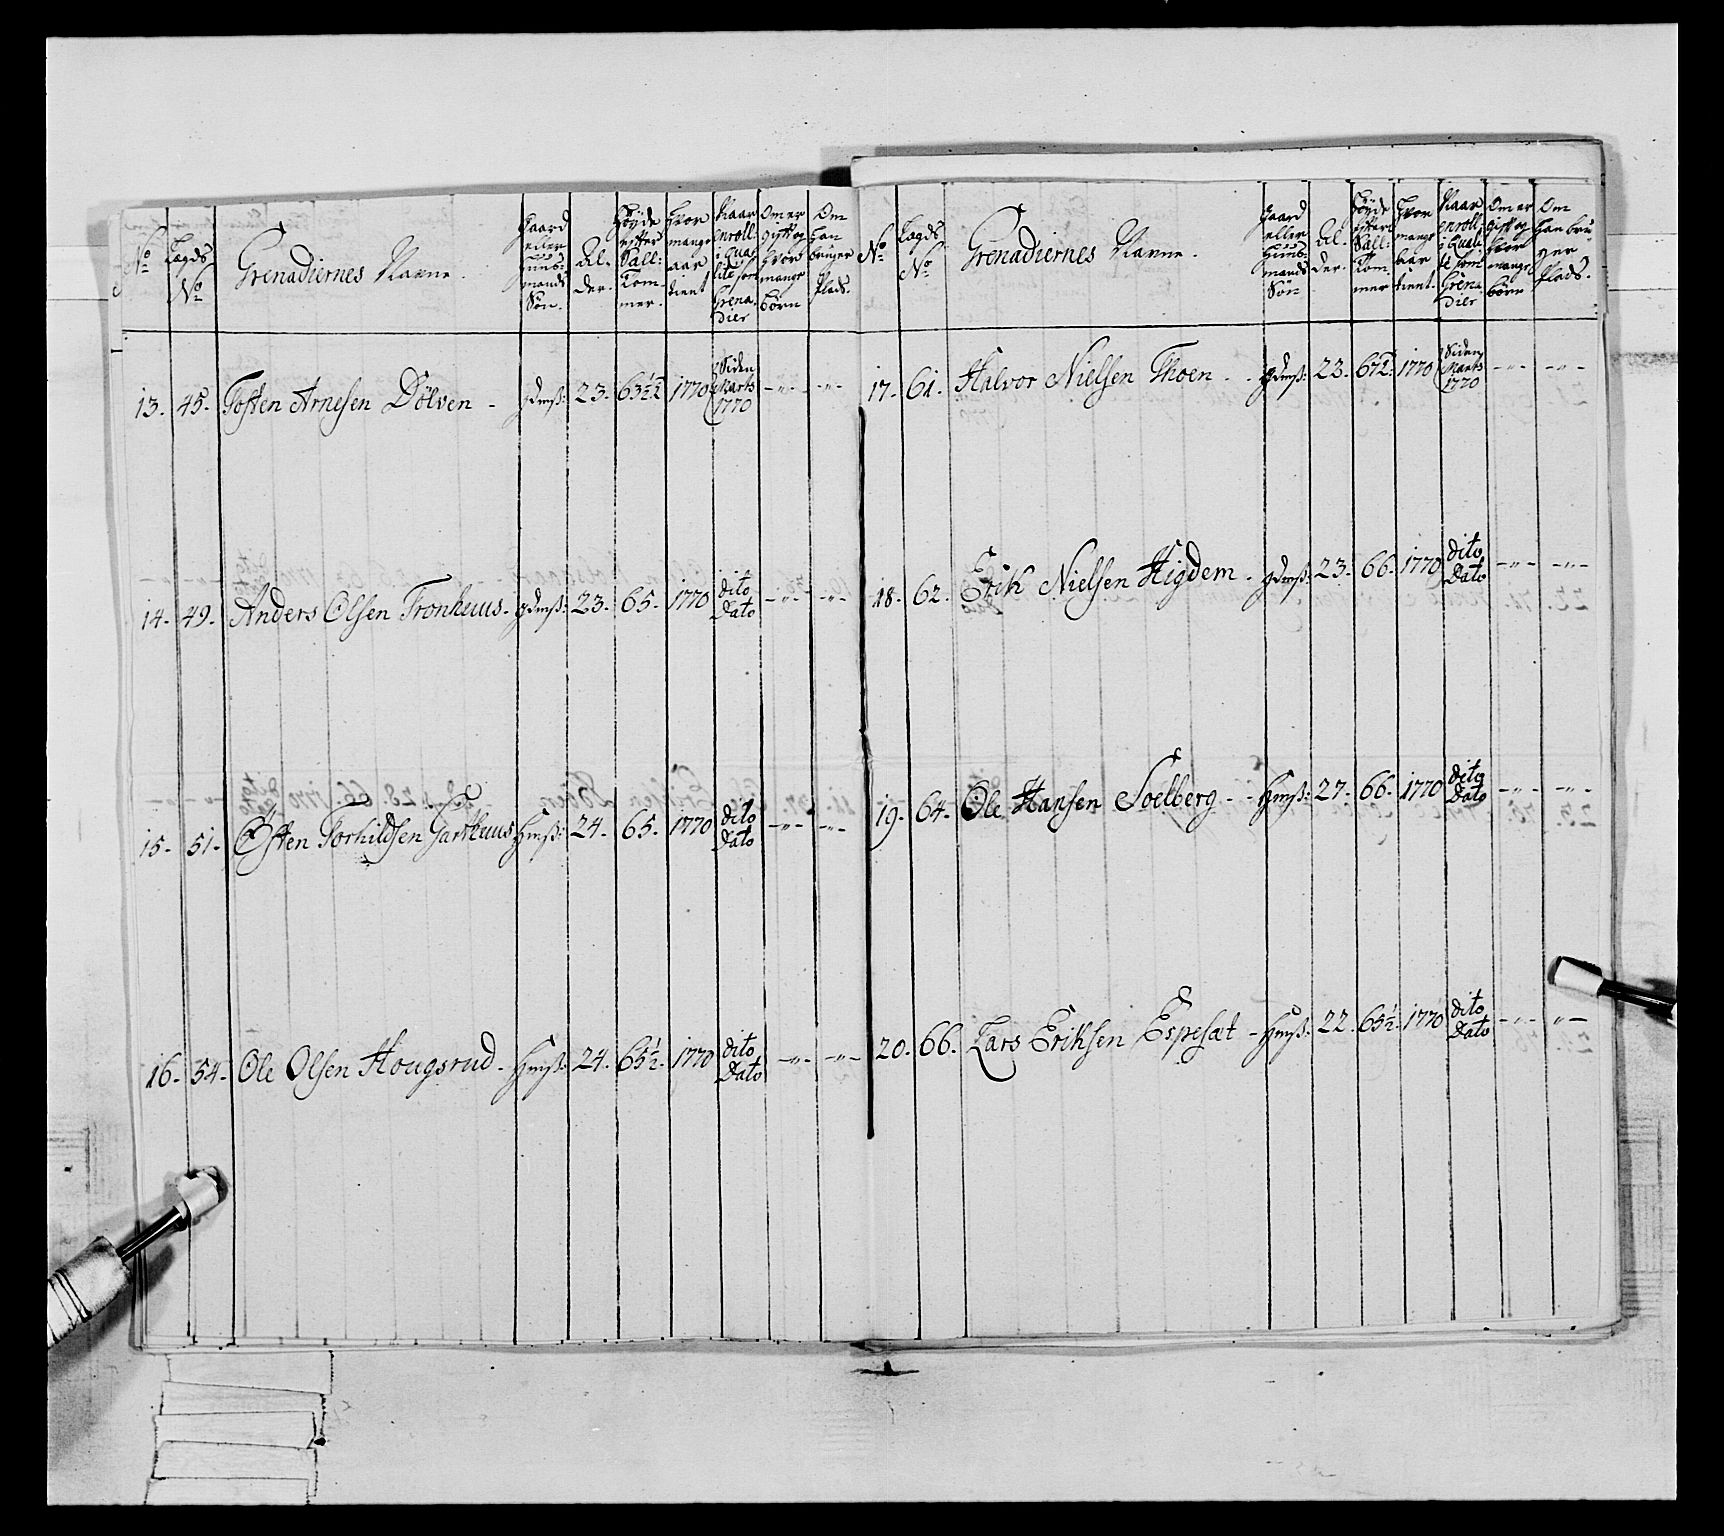 No Lægds No Grenadiernes Navne. Gaard eller Huus-mands Søn. Al-der. Høyde efter Sall: Tom-mer. Hvor mange aar tient Naar enroll: i Qua-lité som Grena-dier Om er gift og hvor mange børn Om han bruger Plads.
13. 45. Tosten Arnesen Dölven - gdmß: 23. 63½ 1770 Siden Marts 1770 -"- -"-
14. 49. Anders Olsen Tronhuus. gdmß: 23. 65. 1770 dito Dato -"- -"-
15. 51. Østen Torhildsen Garthuus Hmß: 24. 65. 1770 dito Dato -"- -"-
16. 54. Ole Olsen Hougsrud. Hmß: 24. 65½. 1770 dito Dato -"- -"-
No Lægds No Grenadiernes Navne. Gaard eller Huus-mands Søn Al-der. Høyde efter Sall: Tom-mer Hvor mange aar tient. Naar enroll: i Quali-té som Grena-dier Om er gift og hvor mange børn Om Han bru-ger Plads.
17. 61. Halvor Nielsen Thoen - - gdmß: 23. 67½. 1770 Siden Marts 1770 -"- -"-
18. 62. Erik Nielsen Higdem. gdmß: 23. 66. 1770 dito Dato -"- -"-
19. 64. Ole Hansen Soelberg - - Hmß: 27. 66. 1770 dito Dato -"- -"-
20. 66. Lars Eriksen Espesæt - Hmß: 22. 65½. 1770 dito Dato -"- "-